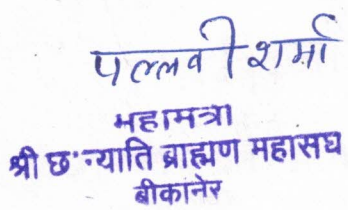 पल्लवी शर्मा
महामत्रा
श्री छःन्याति ब्राह्मण महासघ
बीकानेर